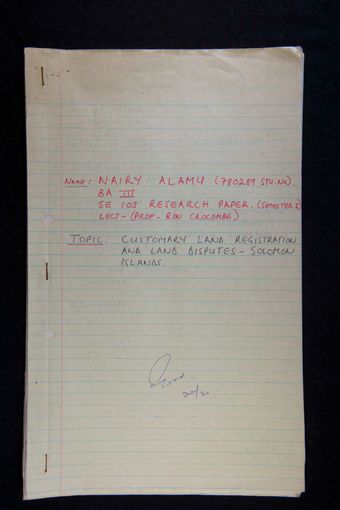 NAME: NAIRY ALAMU (780289 STU.NO).
BA III
SE 103 RESEARCH PAPER. (SEMESTER 2)
LECT- (PROF- RON CROCOMBE)
TOPIC: CUSTOMARY LAND REGISTRATION
AND LAND DISPUTES - SOLOMON
ISLANDS.
20/20